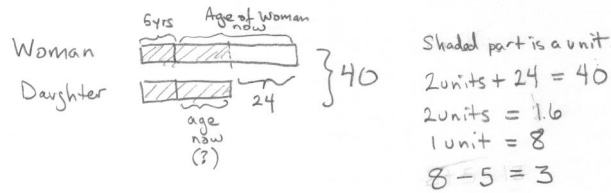 5yrs Age of Woman now
Woman
Daughter
24
} 40
age now (?)
Shaded part is a unit
2 units + 24 = 40
2 units = 16
1 unit = 8
8 - 5 = 3